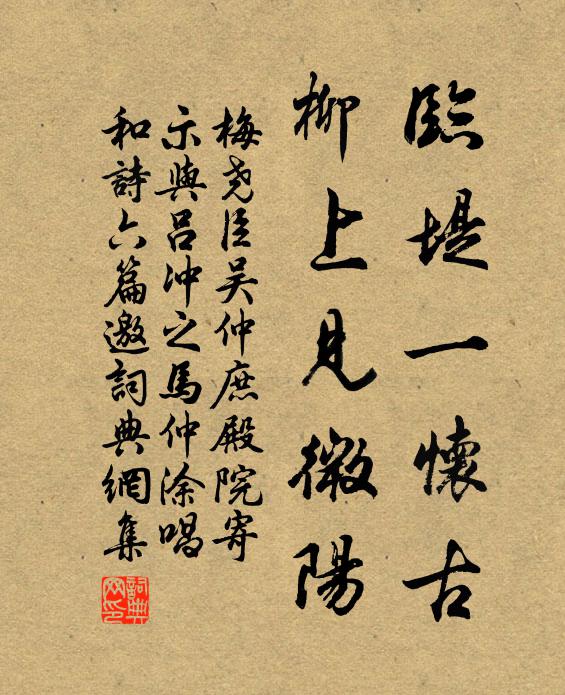 臨堤一懷古
柳上見微陽
梅堯臣吴仲庶殿院寄
示與呂冲之馬仲涂唱
和詩六篇邀詞典網集
詞典网印